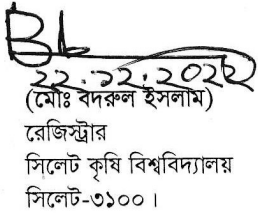 ২২.১২.২০২২
(মোঃ বদরুল ইসলাম)
রেজিস্ট্রার
সিলেট কৃষি বিশ্ববিদ্যালয়
সিলেট-৩১০০।